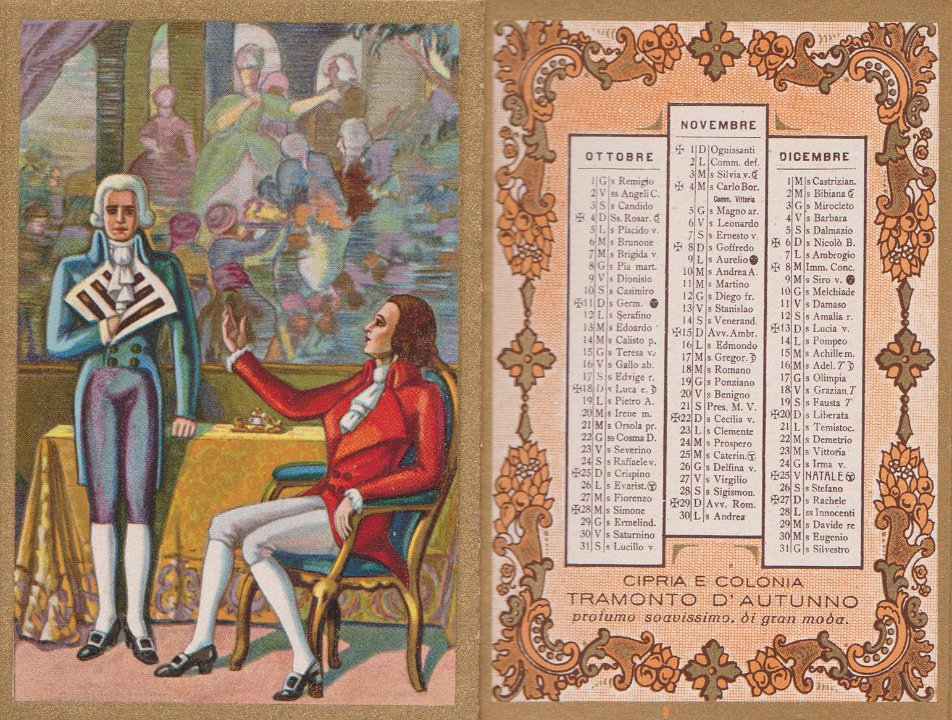 OTTOBRE
1 G s Remigio
2 V ss Angeli C.
3 S s Candido
✠ 4 D Ss. Rosar. ☾
5 L s Placido v.
6 M s Brunone
7 M s Brigida v.
8 G s Pia mart.
9 V s Dionisio
10 S s Casimiro
✠11 D s Germ. ●
12 L s Serafino
13 M s Edoardo
14 M s Calisto p.
15 G s Teresa v.
16 V s Gallo ab.
17 S s Edvige r.
✠18 D s Luca e. ☽
19 L s Pietro A.
20 M s Irene m.
21 M s Orsola pr.
22 G ss Cosma D.
23 V s Severino
24 S s Raffaele v.
✠25 D s Crispino
26 L s Evarist.
27 M s Fiorenzo
✠28 M s Simone
29 G s Ermelind.
30 V s Saturnino
31 S s Lucillo v.
NOVEMBRE
✠ 1 D Ognissanti
2 L Comm. def.
3 M s Silvia v. ☾
✠ 4 M s Carlo Bor.
Comm. Vittoria
5 G s Magno ar.
6 V s Leonardo
7 S s Ernesto v.
✠ 8 D s Goffredo
9 L s Aurelio ●
10 M s Andrea A.
11 M s Martino
12 G s Diego fr.
13 V s Stanislao
14 S s Venerand.
✠15 D Avv. Ambr.
16 L s Edmondo
17 M s. Gregor. ☽
18 M s Romano
19 G s Ponziano
20 V s Benigno
21 S Pres. M. V.
✠22 D s Cecilia v.
23 L s Clemente
24 M s Prospero
25 M s Caterin.
26 G s Delfina v.
27 V s Virgilio
28 S s Sigismon.
✠29 D Avv. Rom.
30 L s Andrea
DICEMBRE
1 M s Castrizian.
2 M s Bibiana ☾
3 G s Mirocleto
4 V s Barbara
5 S s Dalmazio
✠ 6 D s Nicolò B.
7 L s Ambrogio
✠ 8 M Imm. Conc.
9 M s Siro v. ●
10 G s Melchiade
11 V s Damaso
12 S s Amalia r.
✠13 D s Lucia v.
14 L s Pompeo
15 M s Achille m.
16 M s Adel. T ☽
17 G s Olimpia
18 V s Grazian. T
19 S s Fausta T
✠20 D s Liberata
21 L s Temistoc.
22 M s Demetrio
23 M s Vittoria
24 G s Irma v.
✠25 V NATALE
26 S s Stefano
✠27 D s Rachele
28 L ss Innocenti
29 M s Davide re
30 M s Eugenio
31 G s Silvestro
CIPRIA E COLONIA
TRAMONTO D'AUTUNNO
profumo soavissimo, di gran moda.